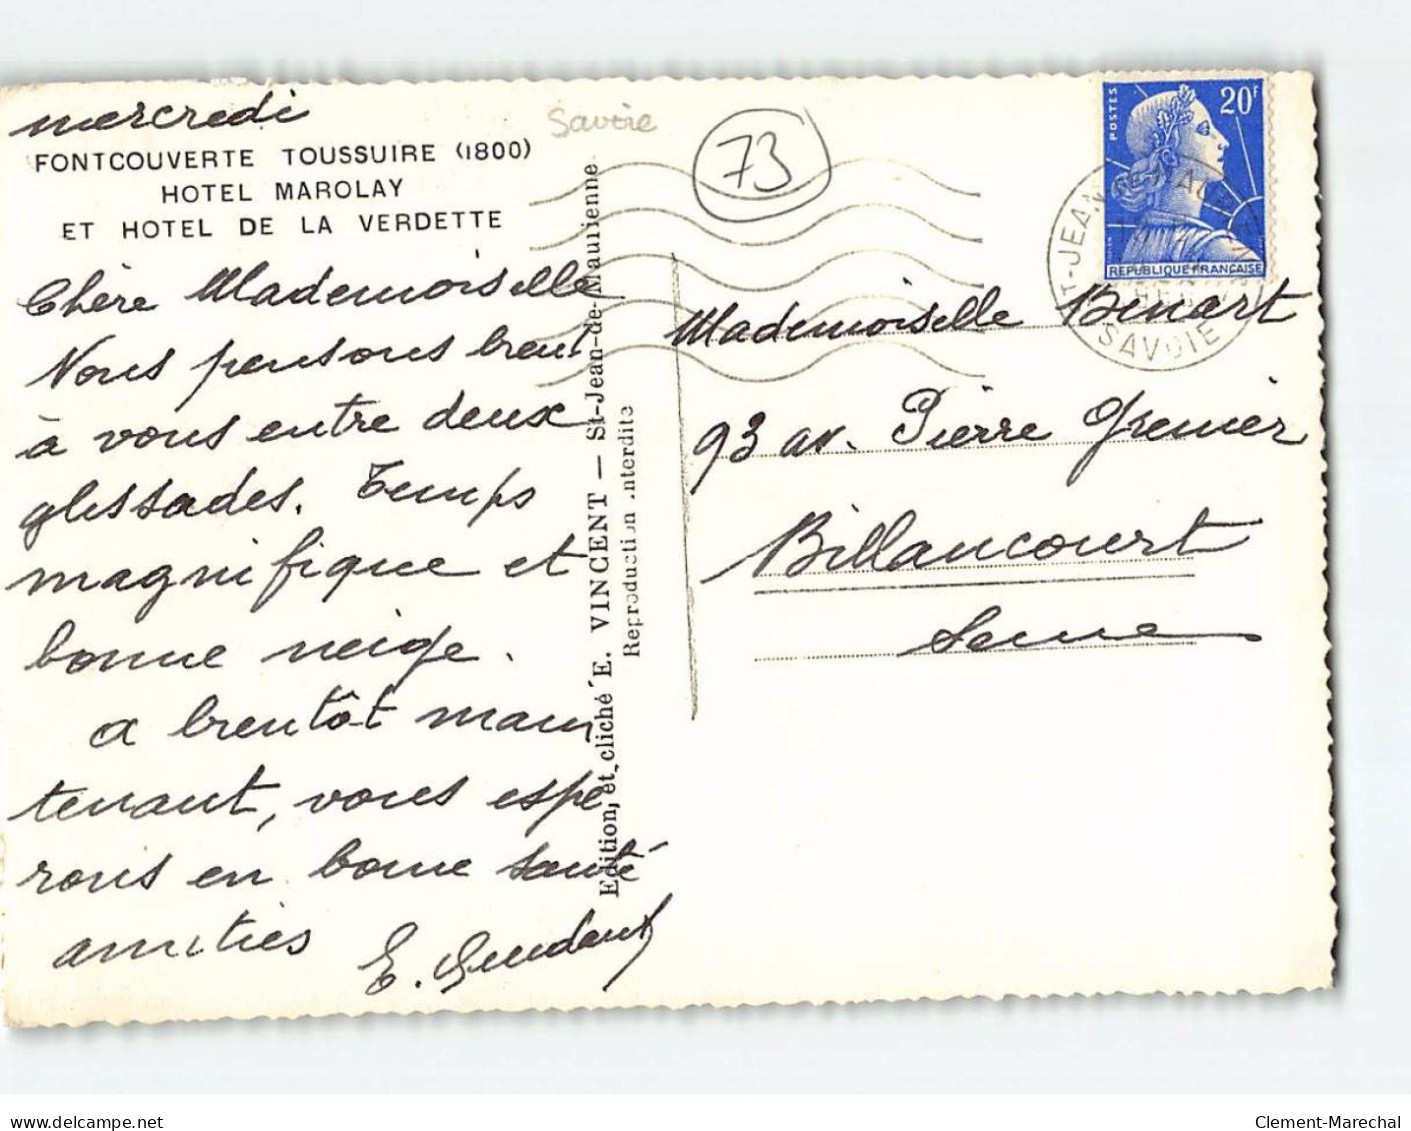 mercredi
FONTCOUVERTE TOUSSUIRE (1800)
HOTEL MAROLAY
ET HOTEL DE LA VERDETTE
Chère Mademoiselle
Nous pensons bien
à vous entre deux
glissades. Temps
magnifique et
bonne neige.
a bientôt main
tenant, vous espé
rons en bonne santé
amitiés
Edition, et cliché E. VINCENT — St-Jean-de-Maurienne
Reproduction interdite
Savoie
73
POSTES
20F
REPUBLIQUE FRANÇAISE
SAVOIE
Mademoiselle Binart
93 av. Pierre Grenier
Billancourt
Seine
www.delcampe.net
Clement-Marechal